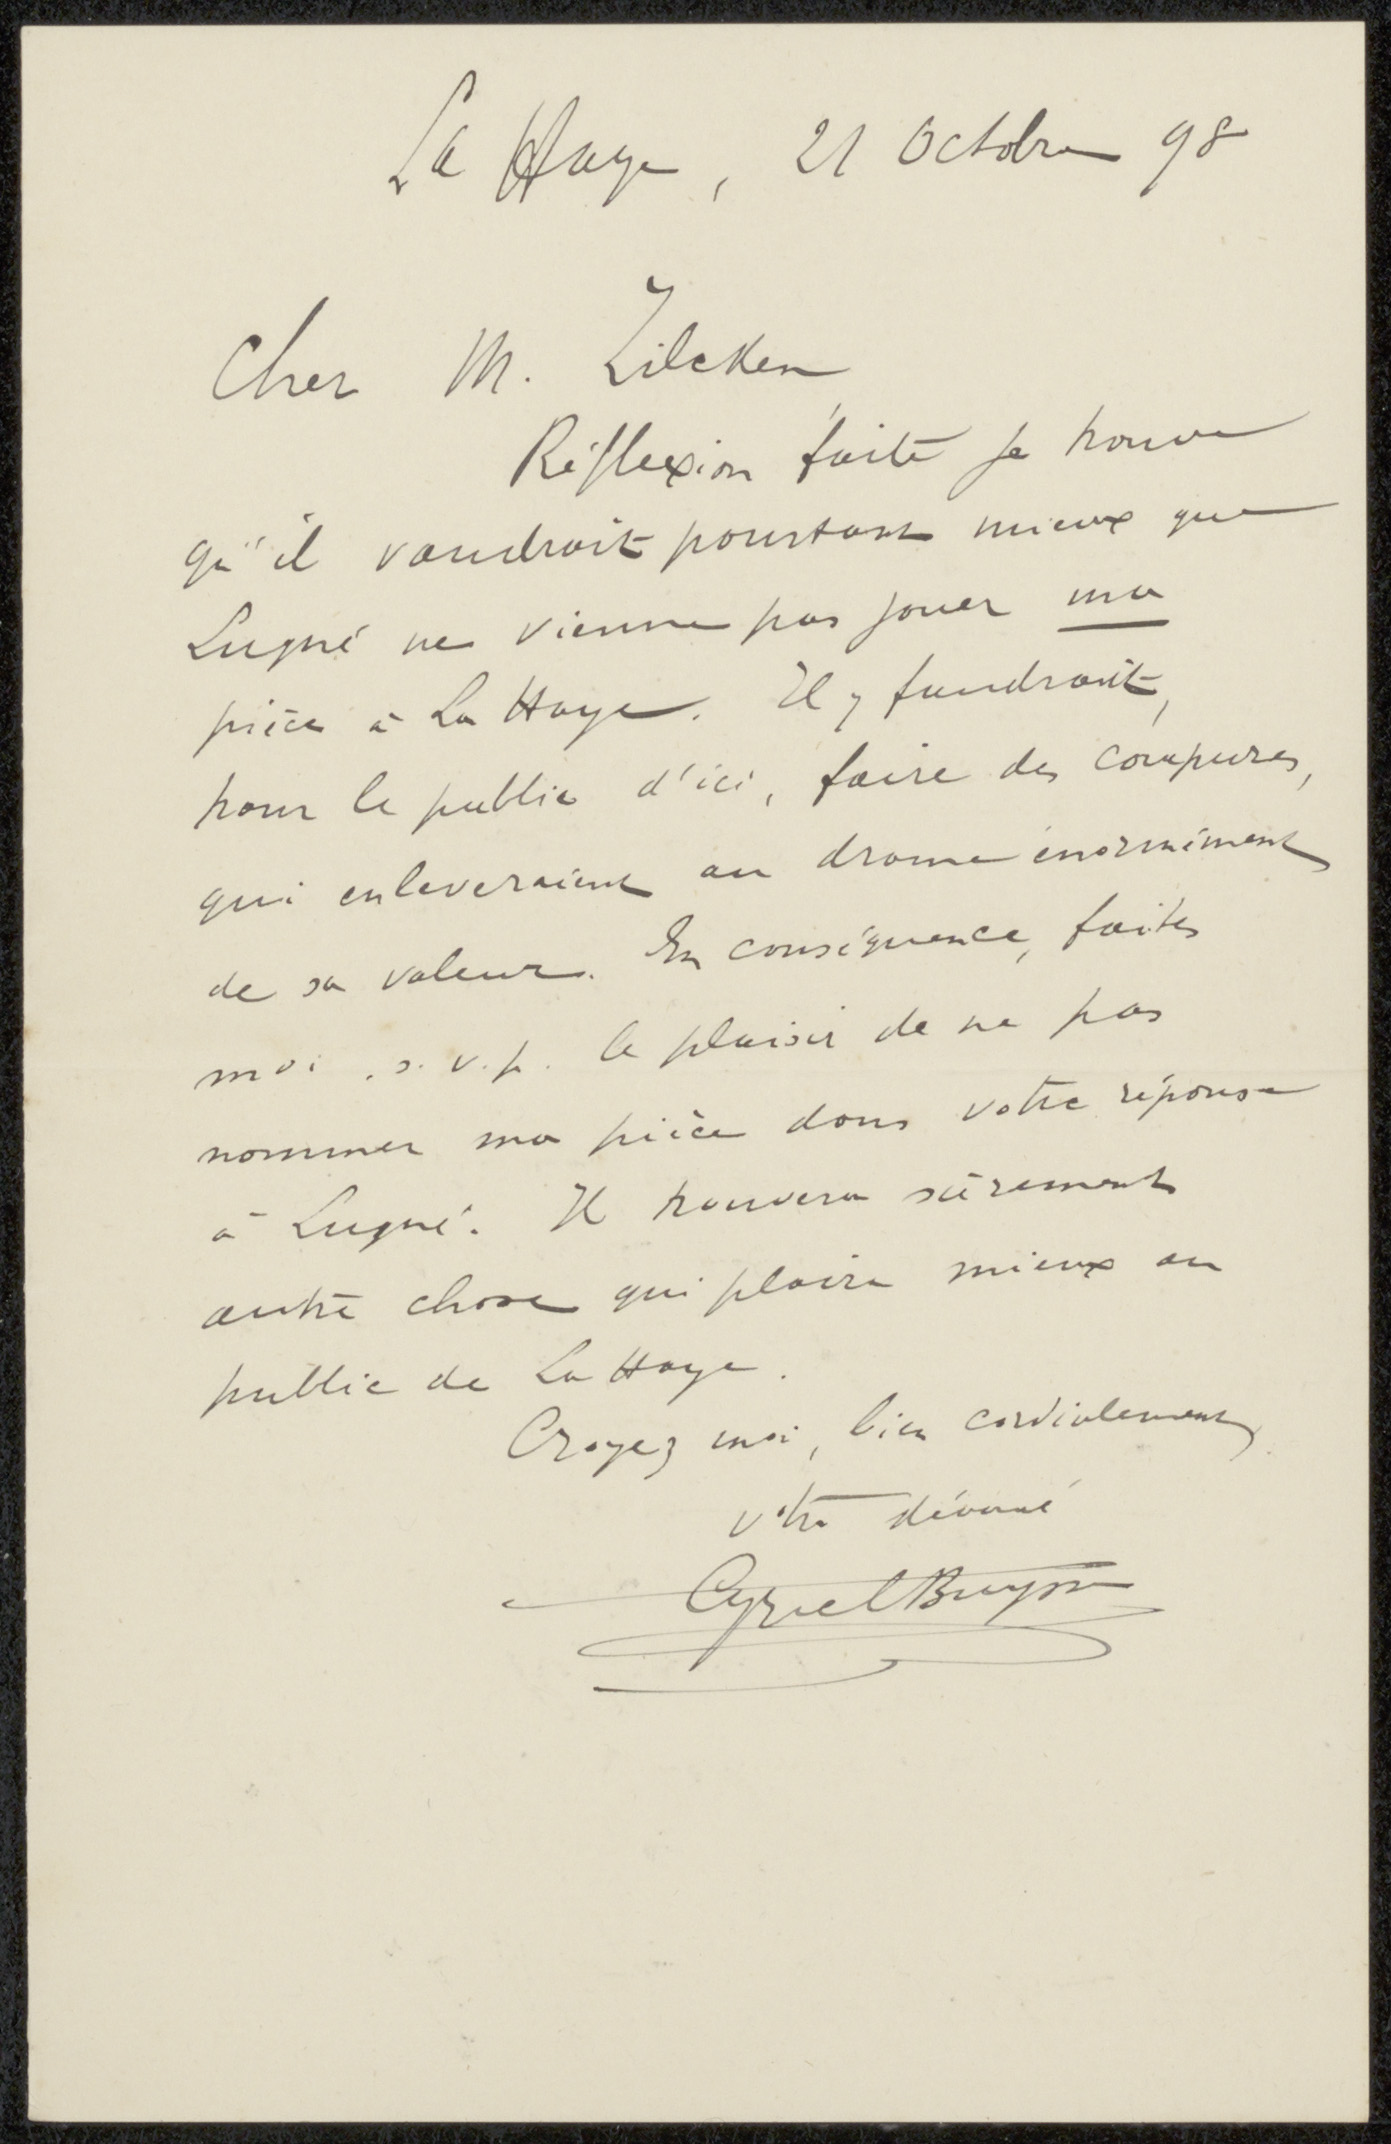 La Haye, 21 Octobre 98
Cher M. Zilcken
Réflexion faite je trouve
qu'il vaudrait pourtant mieux que
Lugné ne vienne pas jouer ma
pièce à La Haye. Il y faudrait,
pour le public d'ici, faire des coupures,
qui enleveraient au drame énormément
de sa valeur. En conséquence, faites
moi. s.v.p. le plaisir de ne pas
nommer ma pièce dans votre réponse
à Lugné. Il trouvera sûrement
autre chose qui plaira mieux au
public de La Haye.
Croyez moi, bien cordialement,
votre dévoué
Cyriel Buysse